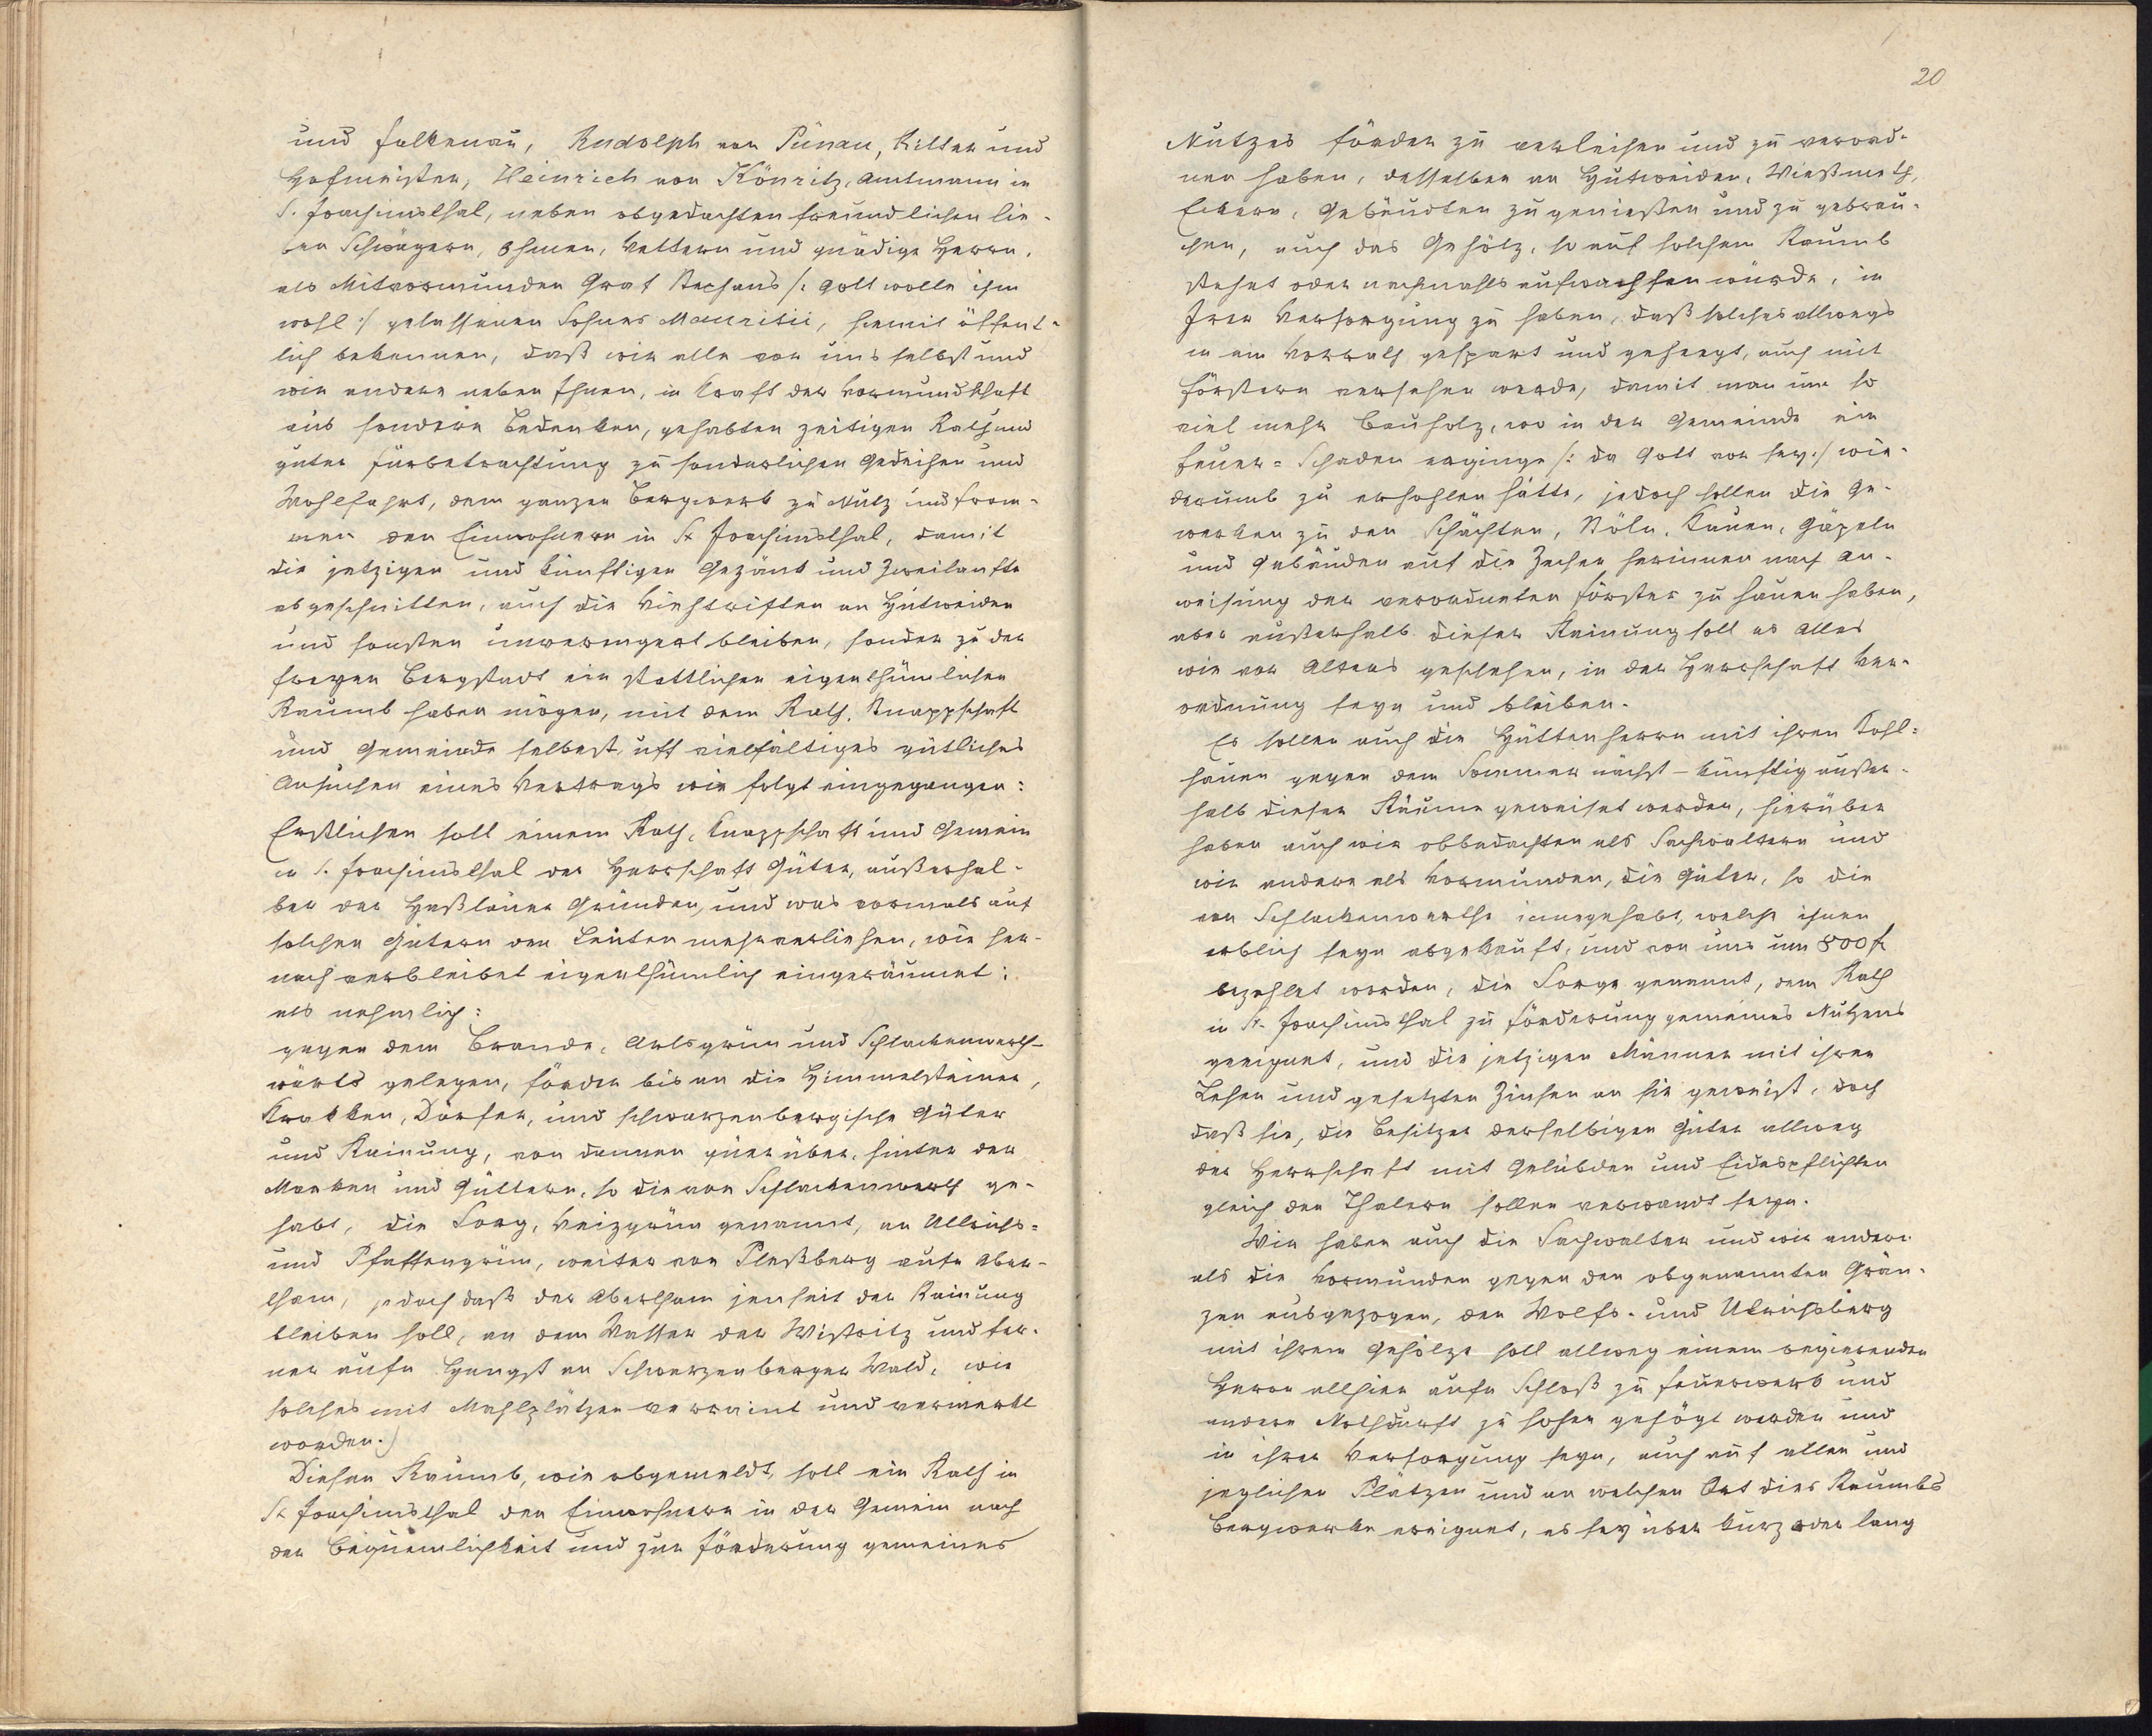 und Falkenau, Rudolph von Pünau, Ritter und
Hofmeister, Heinrich von Könritz, Amtmann in
S. Joachimsthal, neben obgedachten freundlichen lie-
ben Schwägern, Ohmen, Vettern und gnädige Herrn,
als Mitvormunden Graf Stephans /: Gott wolle ihm
wohl :/ gelassenen Sohnes Mauritii, hiemit öffent-
lich bekennen, daß wir alle vor uns selbst und
wir andere neben Ihnen, in Kraft der Vormundschaft
aus sondern Bedenken, gehabten zeitigen Rath und
guter Fürbetrachtung zu sonderlichen Gedeihen und
Wohlfahrt, dem ganzen Bergwerk zu Nutz und From-
men den Einwohnern in St Joachimsthal, damit
die jetzigen und künftigen Gezänk und Zweilaufte
abgeschnitten, auch die Viehtriften an Hutweiden
und sonsten unverengert bleiben, sonder zu der
freyen Bergstadt ein stattlichen eigenthümlichen
Raumb haben mögen, mit dem Rath, Knappschaft
und Gemeinde selbest, uff vielfältiges gütliches
Ansuchen eines Vertrags wie folgt eingegangen:
Erstlichen soll einem Rath, Knappschaft und Gemein
in S. Joachimsthal der Herrschaft Güter, außerhal-
ber der Haßlauer Gründen, und was vormals auf
solchen Gütern den Leuten mehr verliehen, wie her-
nach verbleibet eigenthümlich eingeräumet:
als nehmlich:
gegen dem Brande, Arlsgrün und Schlackenwerth-
wärts gelegen, förder bis an die Himmelsteiner,
Krakken, Dörfer, und schwarzenbergische Güter
und Rainung, von dannen querüber, hinter der
Marken und Güttern, so die von Schlackenwerth ge-
habt, die Sorg, Veizgrün genannt, an Ullrichs-
und Pfaffengrün, weiter von Pleßberg aufn Aber-
tham, jedoch daß der Abertham jenseit der Rainung
bleiben soll, an dem Wasser der Wistritz und fer-
ner aufn Hengst an Schwarzenberger Wald, wie
solches mit Mahlplätzen verraint und vermerkt
worden.)
Diesen Raumb, wie obgemeldt, soll ein Rath in
St Joachimsthal den Einwohnern in der Gemein nach
der Bequemlichkeit und zur Förderung gemeines
20
Nutzes förder zu verleihen und zu verord-
nen haben, desselben an Hutweiden, Wießmeth,
Eckern, Gebäudten zu genießen und zu gebrau-
chen, auch das Gehölz, so auf solchem Raumb
stehet oder nachmahls aufwachsen würde, in
Irer Versorgung zu haben, daß solches allwegs
in ein Vorrath gespart und geheegt, auch mit
Förstern versehen werde, damit man um so
viel mehr Bauholz, wo in der Gemeinde ein
Feuer-Schaden erginge /: da Gott vor sey :/ wie-
derumb zu erhohlen hätte, jedoch sollen die Ge-
werken zu den Schächten, Stöln, Kauen, Gäpeln
und Gebäuden auf die Zechen herinnen nach An-
weisung der verordneten Förster zu hauen haben,
aber außerhalb dieser Rainung soll es Alles
wie vor Alters geschehen, in der Herrschaft Ver-
ordnung seyn und bleiben.
Es sollen auch die Hüttenherrn mit ihren Kohl-
hauen gegen dem Sommer nächst-künftig außer-
halb dieser Räume geweiset werden, hierüber
haben auch wir obbedachten als Sachwaltern und
wir andere als Vormunden, die Güter, so die
von Schlackenwerthe innegehabt, welche ihnen
erblich seyn abgekauft, und von uns um 800 f
bezahlet worden, die Sorge genannt, dem Rath
in St. Joachimsthal zu Förderung gemeines Nutzens
geeignet, und die jetzigen Männer mit ihren
Lehen und gesetzten Zinsen an sie geweist, doch
daß sie, die Besitzer derselbigen Güter allweg
der Herrschaft mit Gelübden und Eidespflichten
gleich den Thalern sollen verwandt seyn.
Wir haben auch die Sachwalter und wir andere
als die Vormunden gegen den obgenannten Grän-
zen ausgezogen, den Wolfs- und Ulrichsberg
mit ihrem Gehölze soll allweg einem regierenden
Herrn allhier aufn Schloß zu Feuerwerk und
andere Nothdurft zu hohen gehögt werden und
in ihrer Versorgung seyn, auch auf allen und
jeglichen Plätzen und an welchen Ort dies Raumbs
Bergwerke ereignet, es sey über kurz oder lang